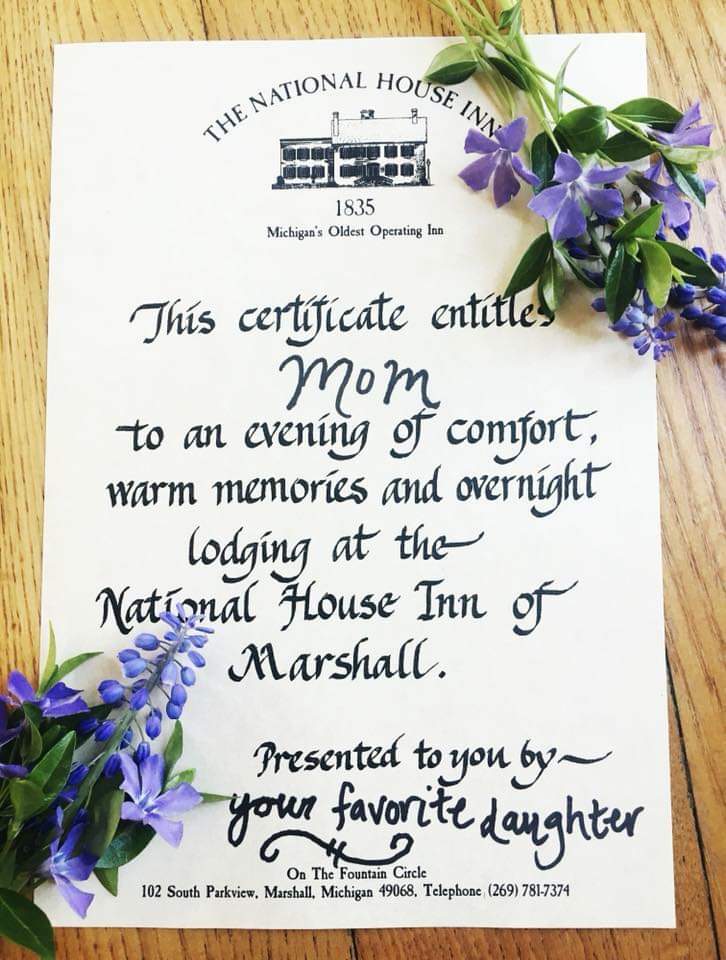 THE NATIONAL HOUSE INN
1835
Michigan's Oldest Operating Inn
This certificate entitles
Mom
to an evening of comfort,
warm memories and overnight
lodging at the
National House Inn of
Marshall.
Presented to you by~
your favorite daughter
On The Fountain Circle
102 South Parkview, Marshall, Michigan 49068, Telephone (269) 781-7374